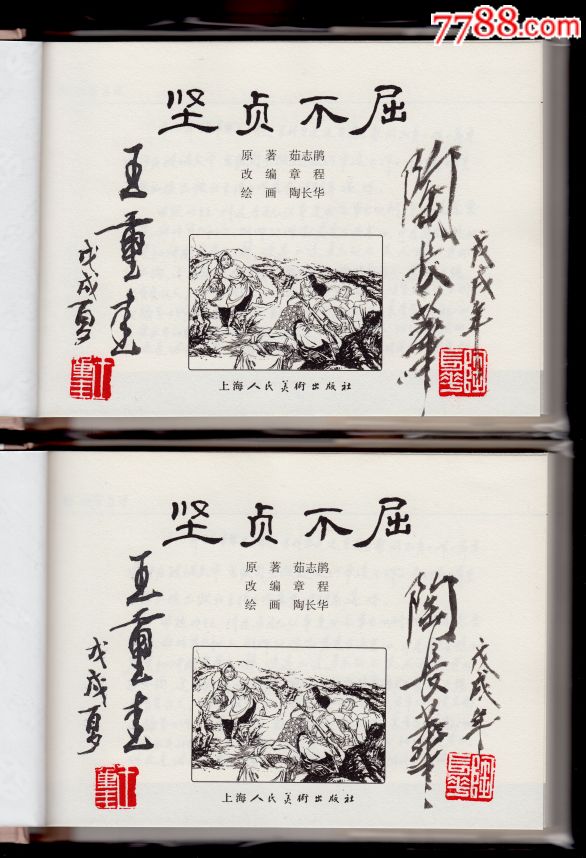 7788.com
坚贞不屈
原 著 茹志鹃
改 编 章 程
绘 画 陶长华
王重圭
戊戌夏
陶長華
戊戌年
上海人民美術出版社
坚贞不屈
原 著 茹志鹃
改 编 章 程
绘 画 陶长华
王重圭
戊戌夏
陶長華
戊戌年
上海人民美術出版社